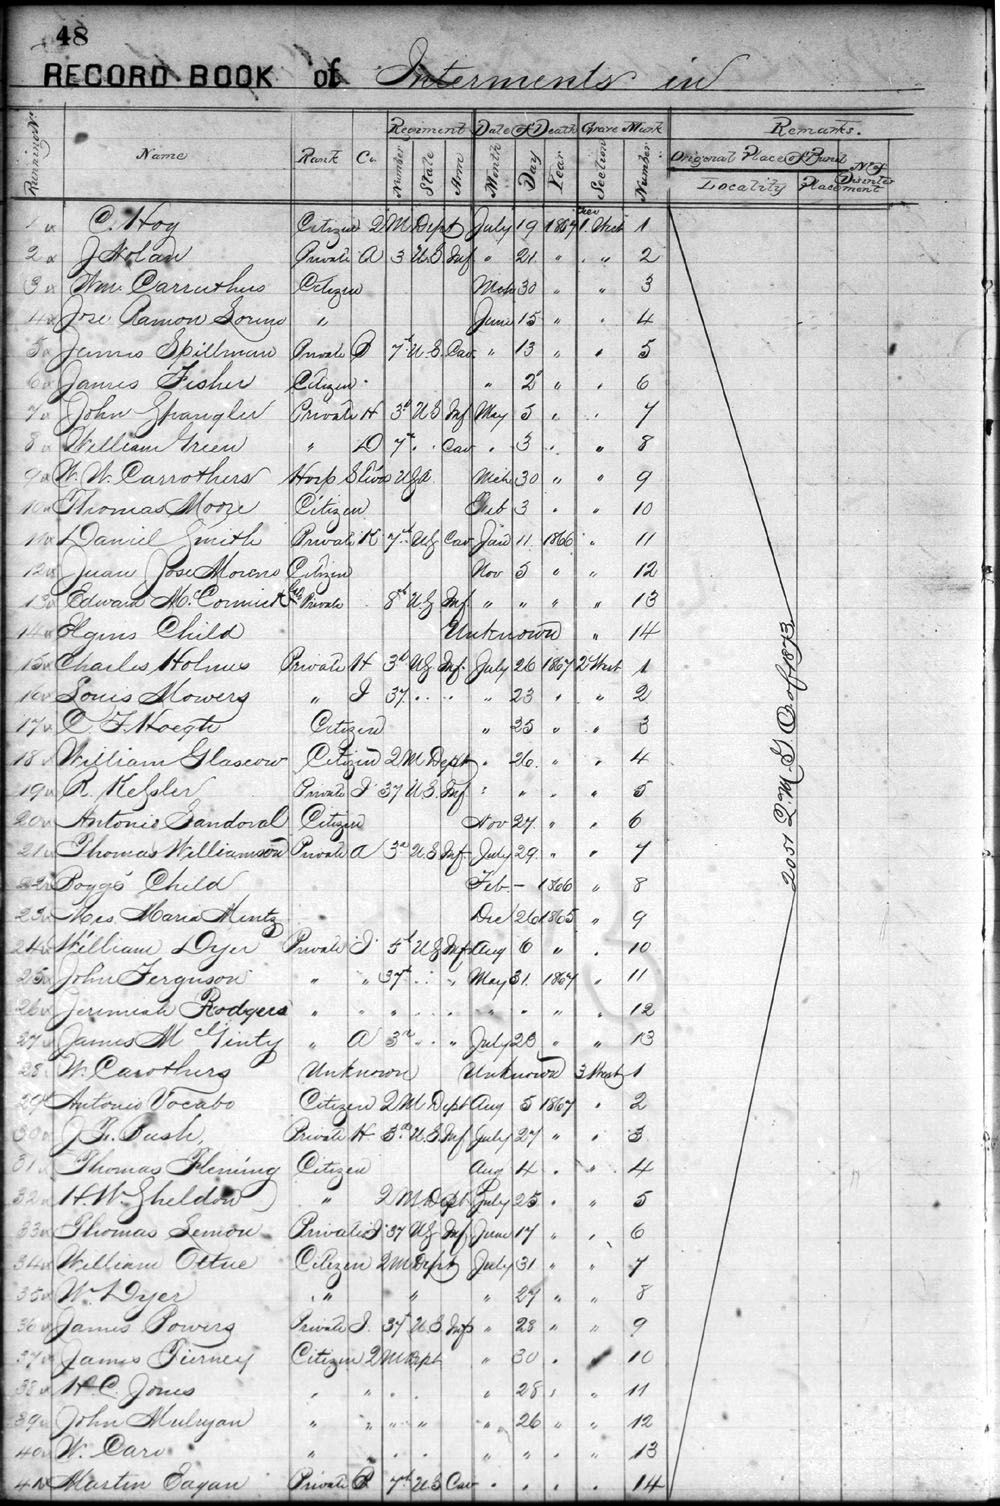 48
RECORD BOOK of Interments in
Running No. Name Rank Co. Regiment Date of Death Grave Mark Remarks.
Number State Arm Month Day Year Section Number Original Place of Burial No of
Locality Placement Disinterment
1 C. Hoy Citizen 2 M Dept July 19 1867 1 West 1
2 J Nolan Private A 3 U S Inf " 21 " " 2
3 Wm. Carruthers Citizen Mch 30 " " 3
4 Jose Ramon " June 15 " " 4
5 James Spillman Private B 7th U.S. Cav " 13 " " 5
6 James Fisher Citizen " 2 " " 6
7 John Spangler Private H 3d U S Inf May 5 " " 7
8 William Green " D 7th " Cav " 3 " " 8
9 W. W. Carrothers Hosp U S A Mch 30 " " 9
10 Thomas Moore Citizen Feb 3 " " 10
11 Daniel Smith Private K 7th U S Cav Jan 11 1866 " 11
12 Juan Jose Moreno Citizen Nov 5 " " 12
13 Edward McCormick Private 8th U S Inf " " " " 13
14 Child Unknown " 14
15 Charles Holmes Private H 3d U S Inf. July 26 1867 2d West 1
16 Louis Mowers " I 37 " " " 23 " " 2
17 C. F. Hoegh Citizen " 25 " " 3
18 William Glascow Citizen 2 M Dept " 26 " " 4
19 R. Kesler Private I 37 U.S. Inf " " " " 5
20 Antonio Sandoval Citizen Nov 27 " " 6
21 Thomas Williamson Private A 3d U S Inf July 29 " " 7
22 Boggs Child Feb - 1866 " 8
23 Mrs Maria Mentz Dec 26 1865 " 9
24 William Dyer Private I 5th U S Inf Aug 6 " " 10
25 John Ferguson " " 37th " " May 31 1867 " 11
26 Jeremiah Rodgers " " " " " " " " " 12
27 James McGinty " A 3rd " " July 23 " " 13
28 W. Carothers Unknown Unknown 3 West 1
29 Antonio Vocabo Citizen 2 M Dept Aug 5 1867 " 2
30 J. F. Bush, Private H 3rd U.S. Inf July 27 " " 3
31 Thomas Fleming Citizen Aug 4 " " 4
32 H. W. Sheldon " 2 M Dept July 25 " " 5
33 Thomas Lemon Private I 37 U S Inf June 17 " " 6
34 William Citizen 2 M Dept July 31 " " 7
35 W. Dyer " " " 29 " " 8
36 James Powers Private I 37 U S Inf " 28 " " 9
37 James Tierney Citizen 2 M Dept " 30 " 10
38 H. C. Jones " " " " " 28 " " 11
39 John Mulryan " " " " " 26 " " 12
40 W. Carr " " " " " " " 13
41 Martin Eagan Private B 7th U S Cav " " " " 14
2051 Q. M. G. O. of 1873